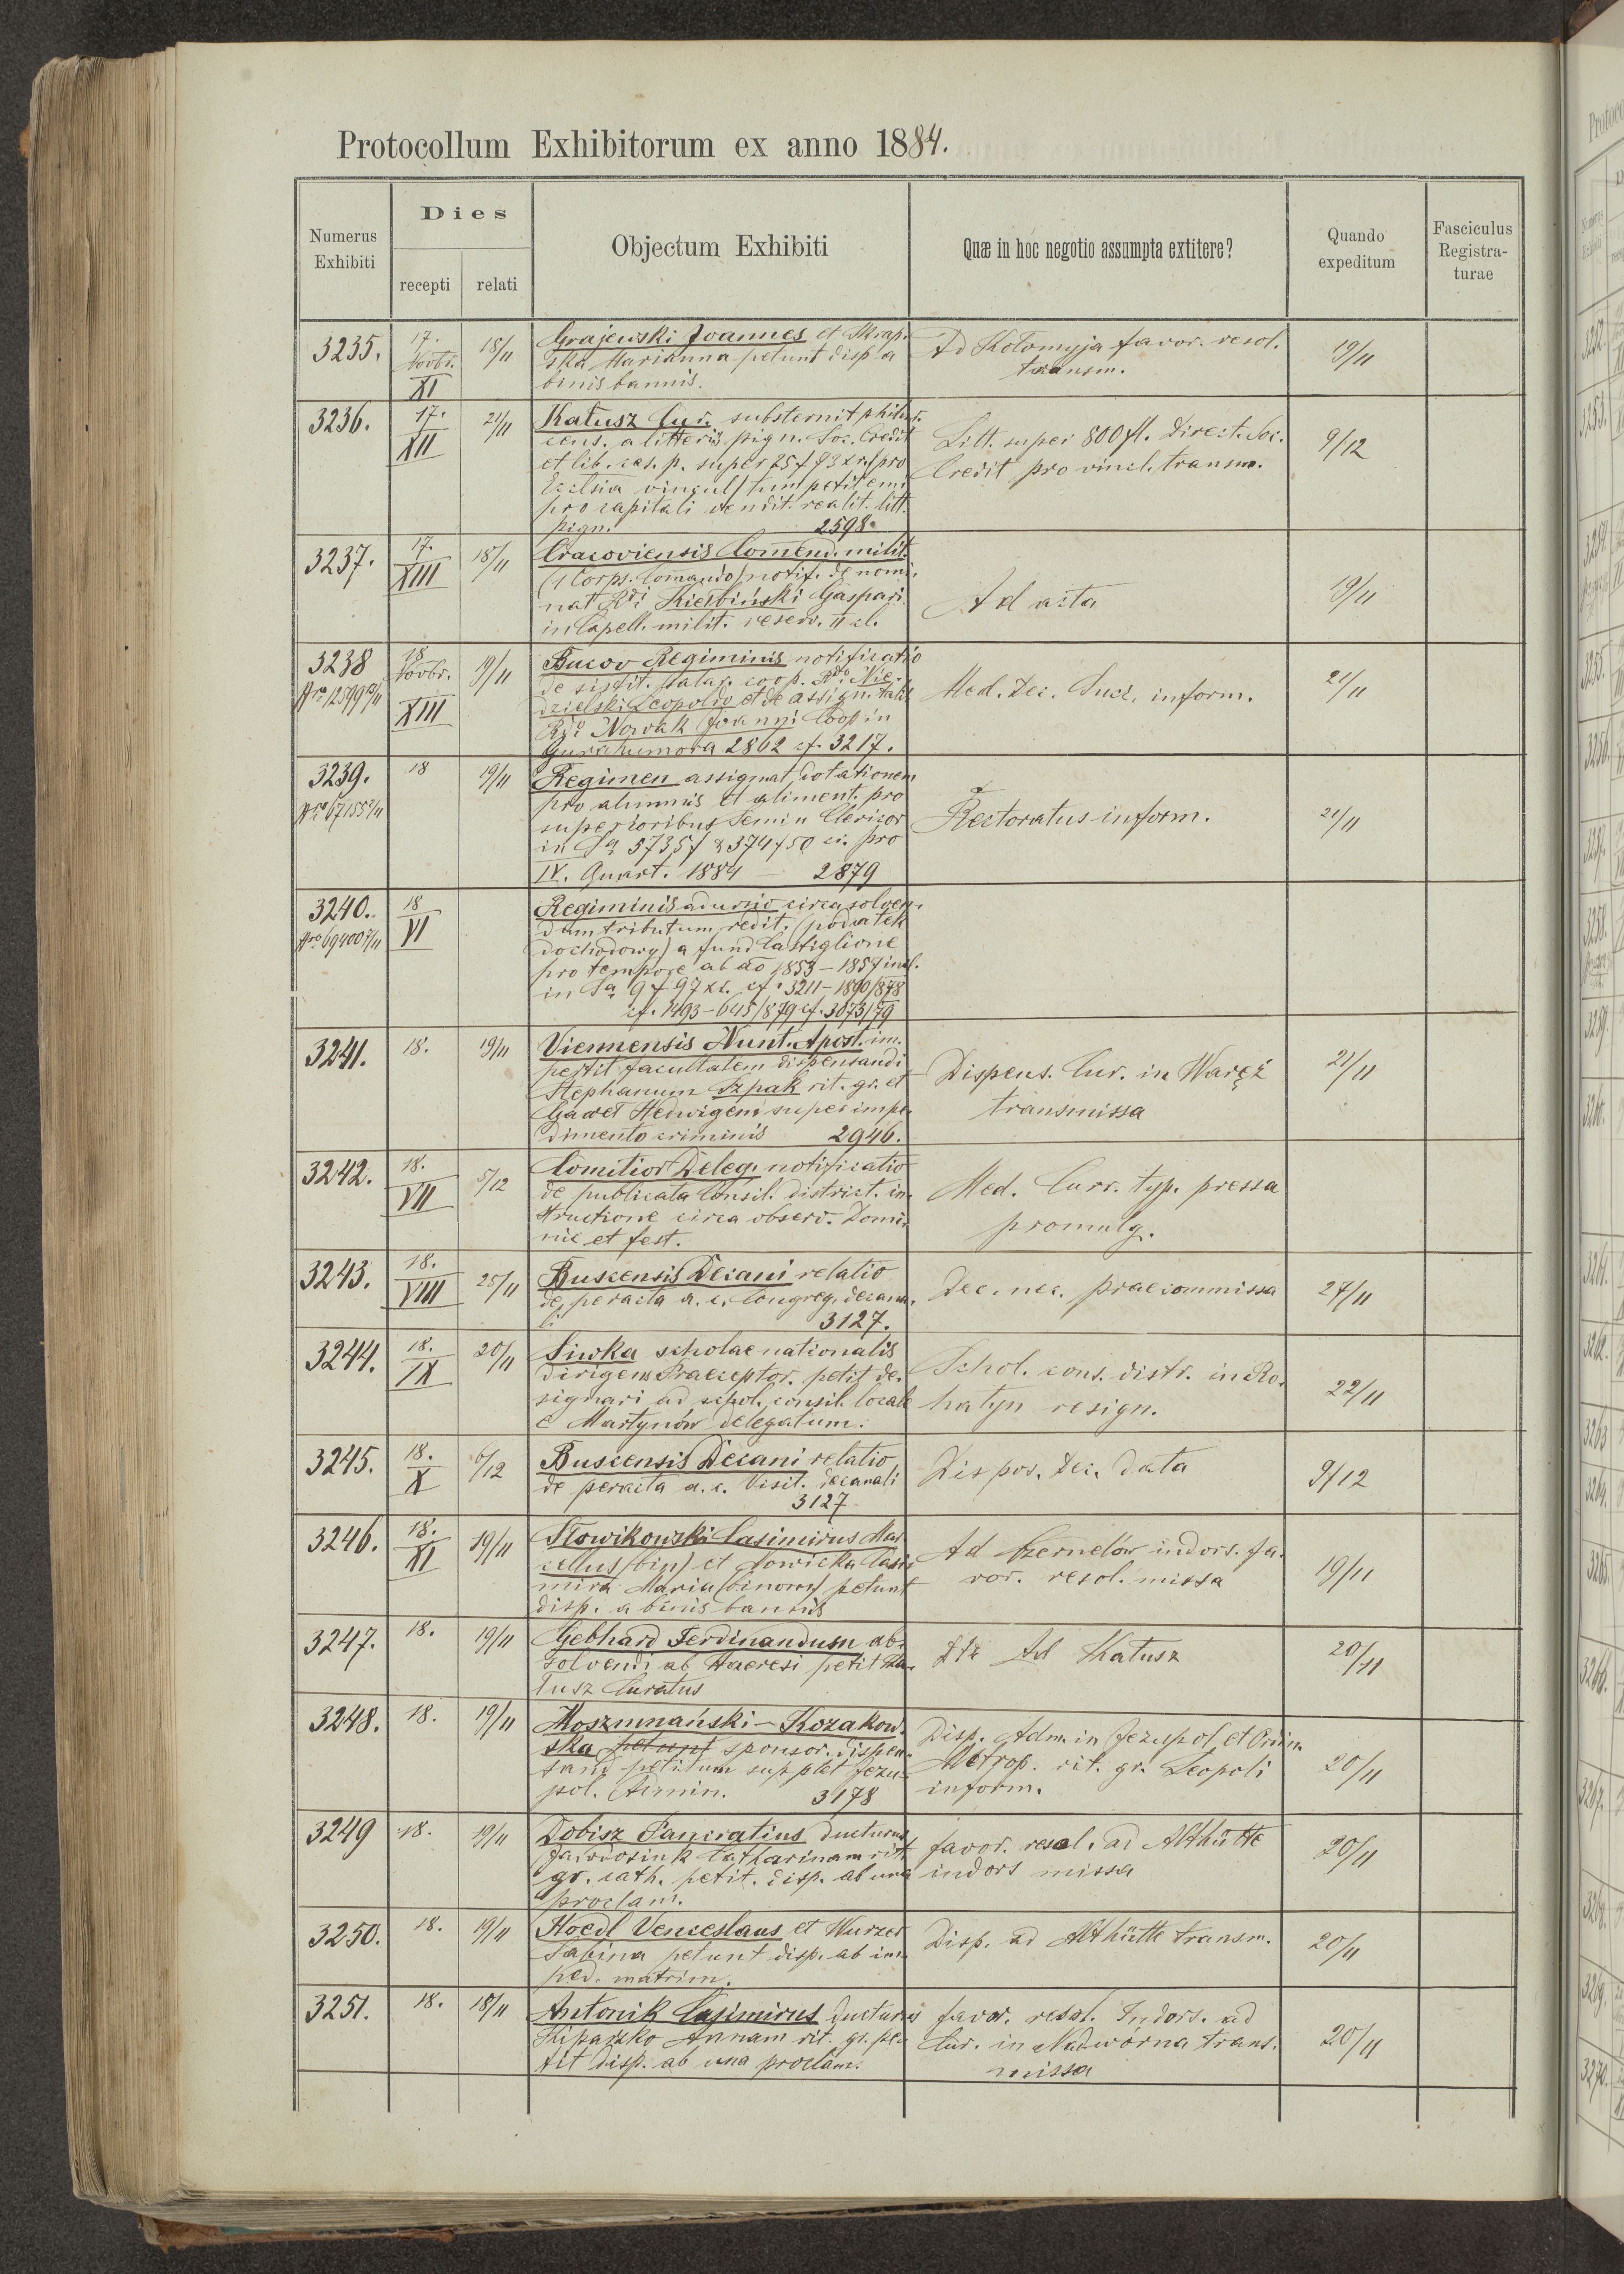 Protocollum Exhibitorum ex anno 1884.
Numerus Exhibiti
Dies
recepti relati
Objectum Exhibiti
Quæ in hoc negotio assumpta extitere?
Quando expeditum
Fasciculus Registra-turae
3235. 17. Novbr. XI 18/11
Grajewski Joannes et Skrap-
ska Marianna petunt disp a
binis bannis.
Ad Kołomyja favor. resol.
transm.
19/11
3236. 17. XII 21/11
Kałusz Cur. substernit
cens. a litteris pign. Soc. Credit
et lib. cas. p. super 25 f 93 xr. (pro
Ecclsia vincul) tum petit emi
pro capitali vendit. realit. litt.
pign. 2598.
Litt. super 800 fl. Direct. Soc.
Credit pro vincl. transm.
9/12
3237. 17. XIII 18/11
Cracoviensis Comend. milit.
(1 Corps. Comando) notif. de nomi.
nat Rdi Kiełbiński Gaspari
in Capell. milit. reserv. II cl.
Ad acta
19/11
3238 18 Novbr. XIII 19/11
Bucov Regiminis notificatio
de sistit. salar. coop. Rdo Nie-
dzielski Leopoldo et de assign. talis
Rdo Nowak Joanni Coop in
Gurahumora 2862 cf. 3217.
Med. Dec. Sucz. inform.
21/11
3239. 18 19/11
Regimen assignat dotationem
pro alumnis et aliment. pro
superioribus Semin Clericor
in Sa 5735 f & 374 f 50 cr. pro
IV. Quart. 1884 — 2879
Rectoratus inform.
21/11
3240. 18 VI
Regiminis circa solven-
dum tributum redit. (podatek
dochodowy) a fund Castiglione
pro tempore ab ao 1853 – 1857 incl.
in Sa 9 f 97 xr. cf. 3211 – 1890/878
cf. 1493 – 645/879 cf. 3073/79
3241. 18. 19/11
Viennensis Nunt. Apost. im.
pertit facultatem dispensandi
Stephanum Szpak rit. gr. et
Gaweł Hedwigem super impe.
dimento criminis 2946.
Dispens. Cur. in Waręż
transmissa
21/11
3242. 18. VII 5/12
Comitior Deleg. notificatio
de publicata Consil. district. in.
structione circa observ. Domi.
nic et fest.
Med. Curr. typ. pressa
promulg.
3243. 18. VIII 25/11
Buscensis Decani relatio
de peracta a. c. Congreg. decana.
li 3127.
Dec. nec. praecommissa
27/11
3244. 18. IX 20/11
Siwka scholae nationalis
dirigens Praeceptor. petit de.
signari ad schol. consil. locale
e Martynów delegatum.
Schol. cons. distr. in Ro.
hatyn resign.
22/11
3245. 18. X 6/12
Buscensis Decani relatio
de peracta a. c. Visit. decanali
3127
Dispos. Dec. data
9/12
3246. 18. XI 19/11
Słowikowski Casimirus Mar
cellus (bin) et Casi
mira Maria (binom) petunt
disp. a binis bannis
Ad Czernelów indors. fa.
vor. resol. missa
19/11
3247. 18. 19/11
Gebhard Ferdinandum ab.
solvendi ab Haeresi petit Ka.
łusz Curatus
Ad Kałusz
20/11
3248. 18. 19/11
Moszumański – Kozakow.
ska petunt sponsor. dispen.
sand petitum supplet Jezu-
pol. Admin. 3178
Disp. Adm. in Jezupol et Ordin.
Metrop. rit. gr. Leopoli
inform.
20/11
3249 18. 19/11
Dobisz Pancratius ducturus
Catharinam rit
gr. cath. petit. disp. ab una
proclam.
favor. resol. ad Althütte
indors missa
20/11
3250. 18. 19/11
Hoedl Venceslaus et Wurzer
Sabina petunt disp. ab im
ped. matrim.
Disp. ad Althütte transm.
20/11
3251. 18. 18/11
Antonik Casimirus ducturus
Kiparzko Annam rit. gr. pe.
tit disp. ab una proclam.
favor. resol. Indors. ad
Cur. in Nadwórna trans.
missa
20/11